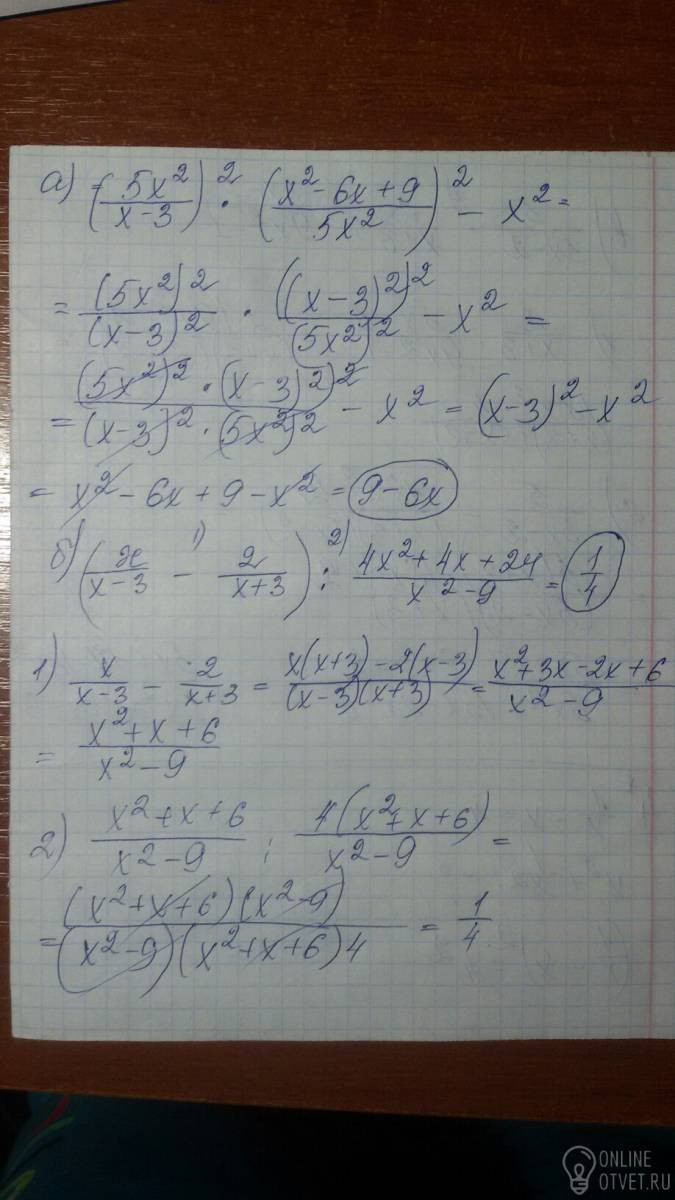 а) (5x²/x-3)² · (x²-6x+9/5x²)² - x² =
= (5x²)²/(x-3)² · ((x-3)²)²/(5x²)² - x² =
= (5x²)²·(x-3)²)²/(x-3)²·(5x²)² - x² = (x-3)² - x²
= x² - 6x + 9 - x² = 9-6x
б) (x/x-3 -¹⁾ 2/x+3) :²⁾ 4x²+4x+24/x²-9 = 1/4
1) x/x-3 - 2/x+3 = x(x+3)-2(x-3)/(x-3)(x+3) = x²+3x-2x+6/x²-9
= x²+x+6/x²-9
2) x²+x+6/x²-9 : 4(x²+x+6)/x²-9 =
= (x²+x+6)(x²-9)/(x²-9)(x²+x+6)4 = 1/4
ONLINE
OTVET.RU